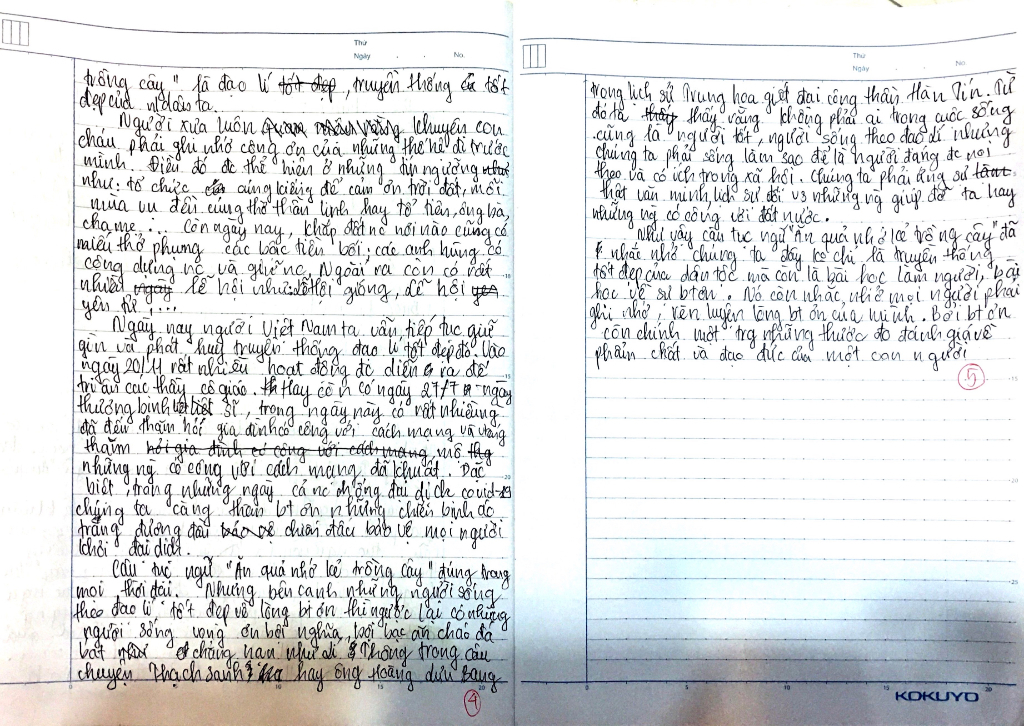 Thứ
Ngày . . No.
trồng cây" là đạo lí tốt đẹp, truyền thống của tốt
đẹp của nhân dân ta.
Người xưa luôn khuyên con
cháu phải ghi nhớ công ơn của những thế hệ đi trước
mình. Điều đó đc thể hiện ở những tín ngưỡng như
như: tổ chức của cúng kiếng để cảm ơn trời đất, mỗi
mùa vụ đến cúng thờ thần linh hay tổ tiên, ông bà,
cha mẹ,... Còn ngày nay, khắp đất nc nơi nào cũng có
miếu thờ phụng các bậc tiên bối; các anh hùng có
công dựng nc và giữ nc, Ngoài ra còn có rất
nhiều ngày lễ hội như: lễ hội gióng, lễ hội yên
yên tử,...
Ngày nay người Việt Nam ta vẫn tiếp tục giữ
gìn và phát huy truyền thống đạo lí tốt đẹp đó. Vào
ngày 20/11 rất nhiều hoạt động đc diễn ra để
tri ân các thầy cô giáo. Hay còn có ngày 27/7 - ngày
thương binh liệt sĩ, trong ngày này có rất nhiều
đã đến thăm hỏi gia đình có công với cách mạng và
thăm hỏi gia đình có công với cách mạng, mộ
những ng có công với cách mạng đã khuất. Đặc
biệt, trong những ngày cả nc chống đại dịch covid-19
chúng ta càng thêm bt ơn những chiến binh áo
trắng đương đầu bảo vệ chiến đấu bảo vệ mọi người
khỏi đại dịch.
Câu tục ngữ "Ăn quả nhớ kẻ trồng cây" đúng trong
mọi thời đại. Nhưng bên cạnh những người sống
theo đạo lí tốt đẹp về lòng bt ơn thì ngược lại có những
người sống vong ơn bội nghĩa, bội bạc ăn cháo đá
bát chẳng hạn như Lí Thông trong câu
chuyện Thạch Sanh hay ông Hoàng dưu Bang
4
Thứ
Ngày . . No.
trong lịch sử Trung hoa giết đại công thần Hàn Tín. Từ
đó ta thấy thấy rằng không phải ai trong cuộc sống
cũng là người tốt, người sống theo đạo lí nhưng
chúng ta phải sống làm sao để là người đáng đc noi
theo và có ích trong xã hội. Chúng ta phải ứng sử
thật văn minh, lịch sự đối vs những ng giúp đỡ ta hay
những ng có công với đất nước.
Như vậy câu tục ngữ "Ăn quả nhớ kẻ trồng cây" đã
nhắc nhở chúng ta đây ko chỉ là truyền thống
tốt đẹp của dân tộc mà còn là bài học làm người, bài
học về sự bt ơn. Nó còn nhắc nhở mọi người phải
ghi nhớ, rèn luyện lòng bt ơn của mình. Bởi bt ơn
còn chính một trg những thước đo đánh giá về
phẩm chất và đạo đức của một con người
5
KOKUYO